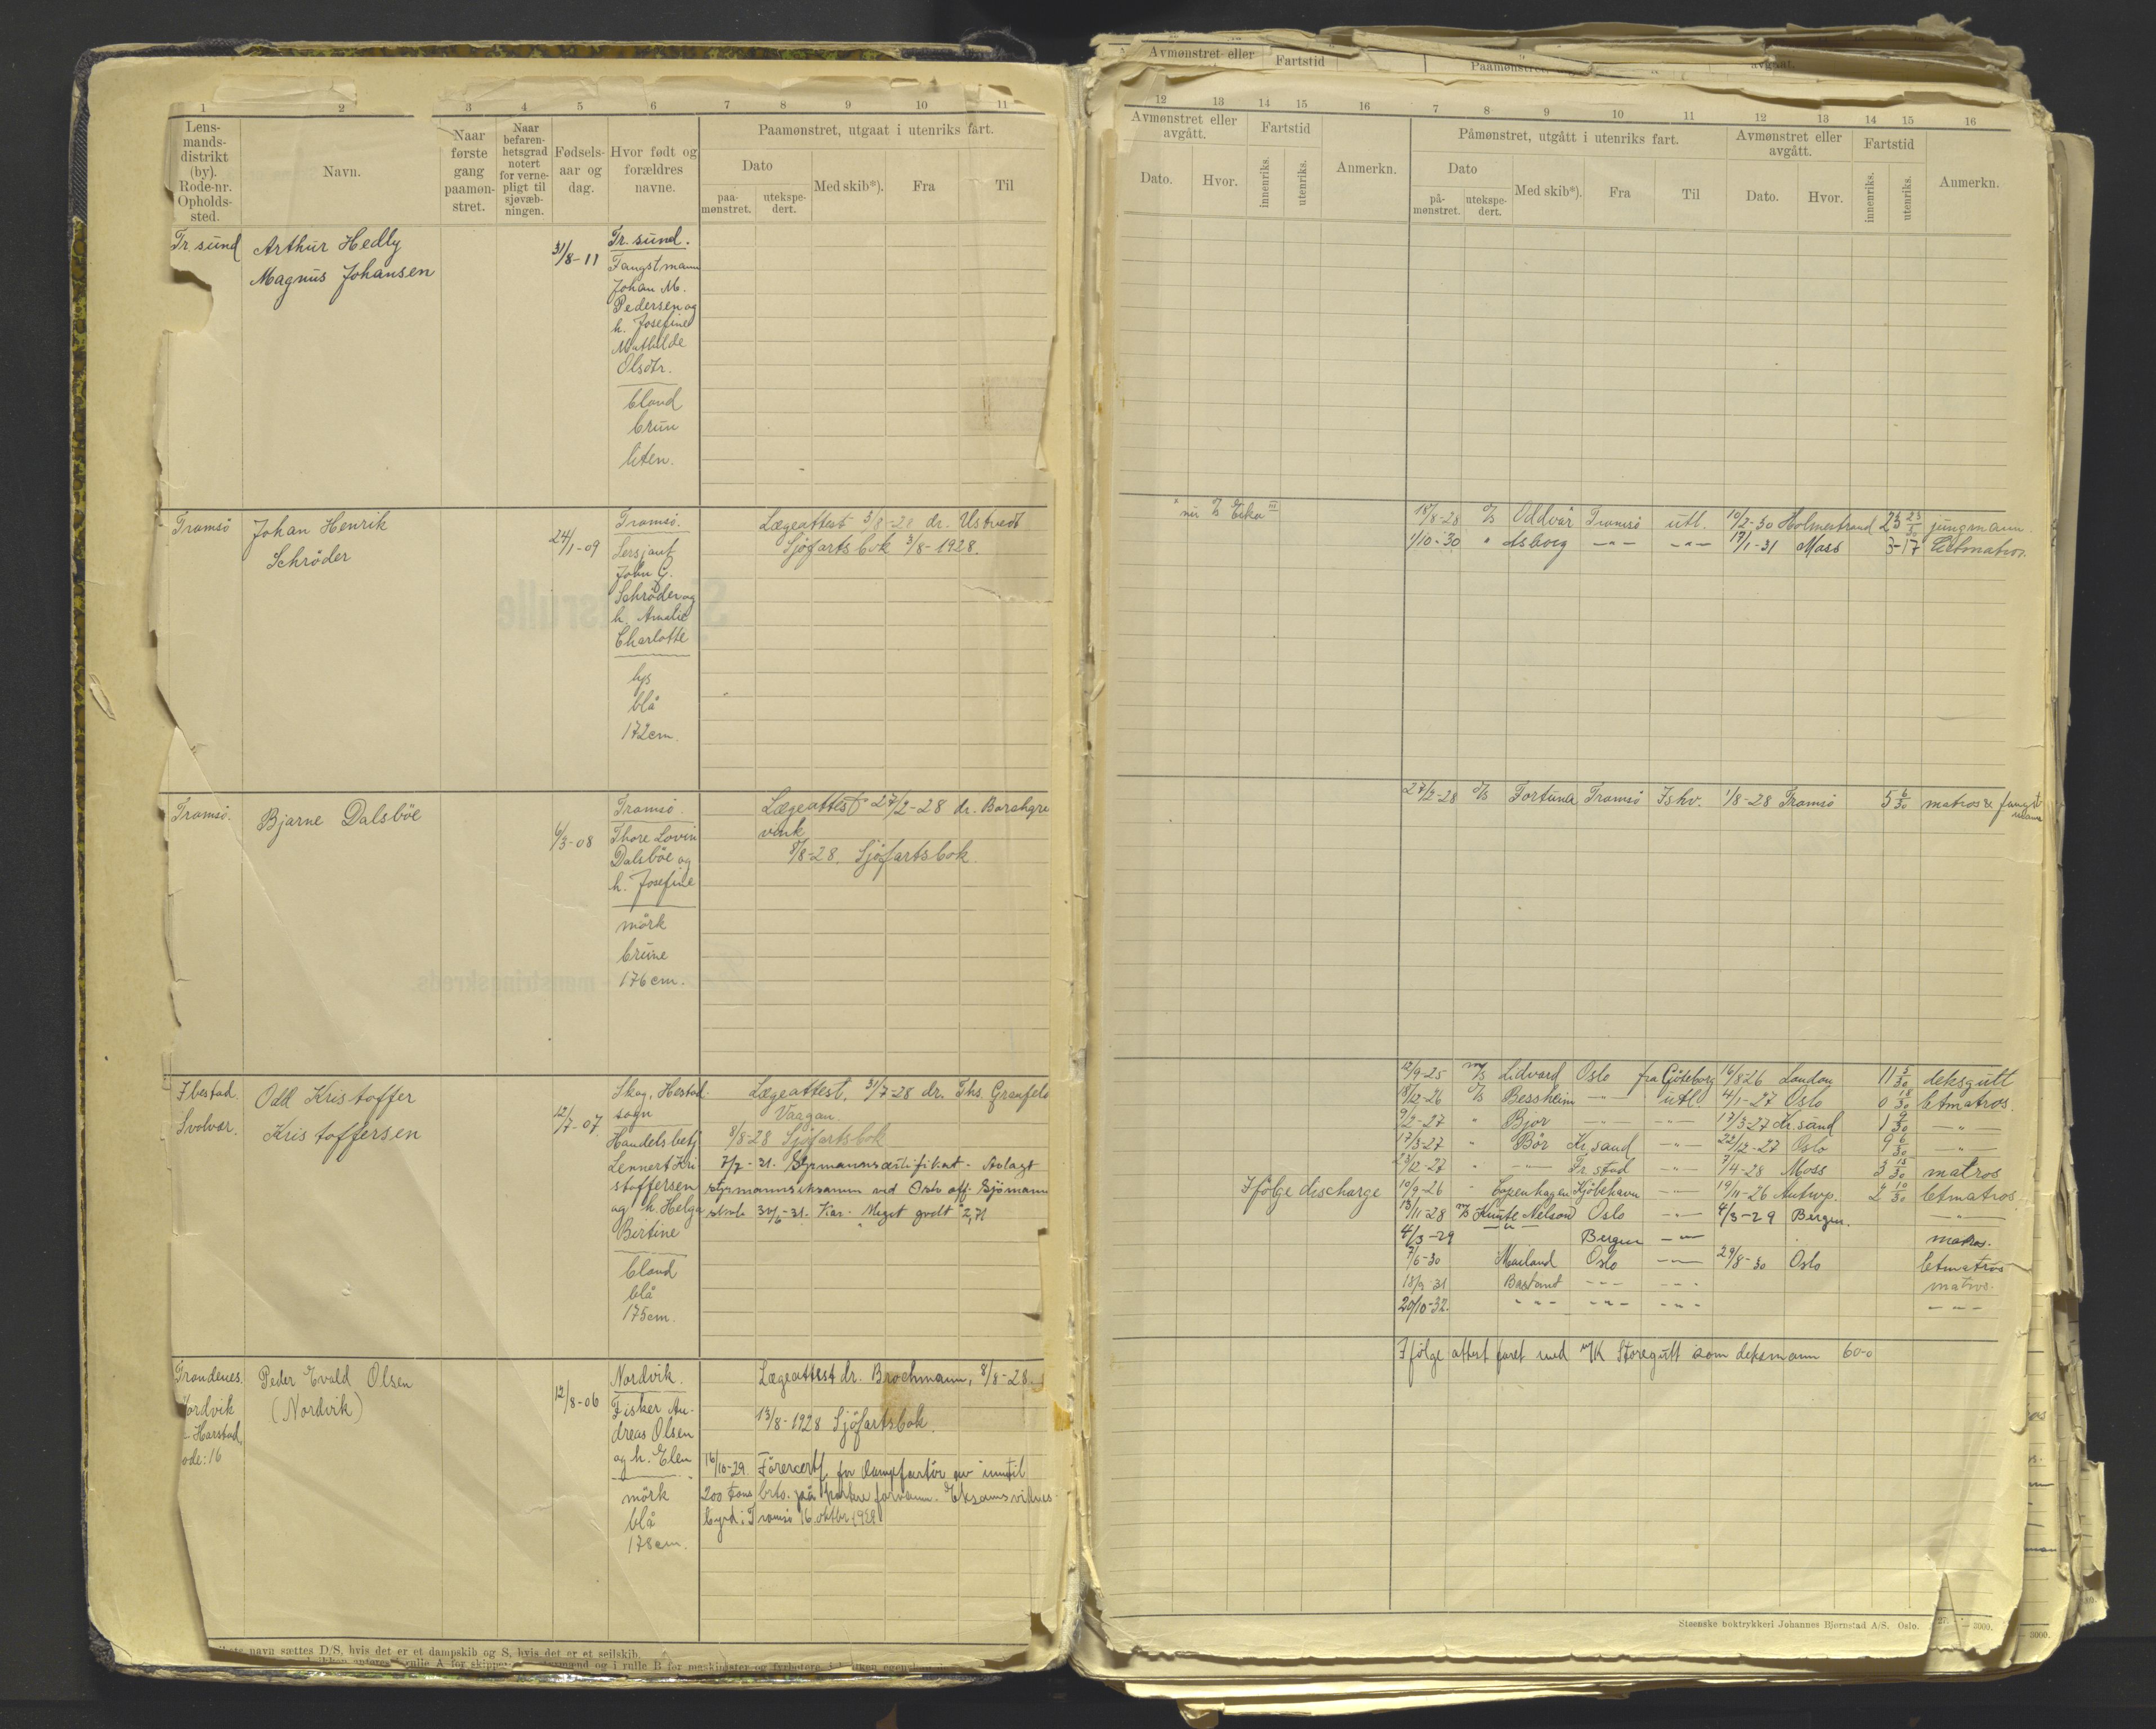 1 2 3 4 5 6 7 8 9 10 11
Lens-
mands-
distrikt
(by).
Rode-nr.
Opholds-
sted.
Navn.
Naar
første
gang
paamøn-
stret.
Naar
befaren-
hetsgrad
notert
for verne-
pligt til
sjøvæb-
ningen.
Fødsels-
aar og
dag.
Hvor født og
forældres
navne.
Paamønstret, utgaat i utenriks fart.
Dato
paa-
mønstret.
utekspe-
dert.
Med skib*).
Fra
Til
Tr. sund
Arthur Hedly
Magnus Johansen
31/8-11
Tr. sund.
Fangstmann
Johan M.
Pedersen og
h. Josefine
Mathilde
Olsdtr.
blond
brun
liten.
Tromsö
Johan Henrik
Schröder
24/1-09
Tromsö.
Sersjant
John G.
Schröder og
h. Amalie
Charlotte
lys
blå
172 cm.
Lægeattest 3/8-28 dr. Ustvedt
Sjöfartsbok 3/8-1928.
Tromsö.
Bjarne Dalsböe
6/3-08
Tromsö.
Thore Lovin
Dalsböe og
h. Josefine
mörk
brune
176 cm.
Lægeattest 27/2-28 dr. Borchgre
vink
8/8-28. Sjöfartsbok.
Ibestad.
Svolvær.
Odd Kristoffer
Kristoffersen
12/7-07
Skog, Ibestad
sogn
Handelsbetj
Lennert Kri
stoffersen
og h. Helga
Birtine
blond
blå
175 cm.
Lægeattest. 31/7-28 dr. Ths. Grenfeld
Vargan.
8/8-28 Sjöfartsbok
7/7-31. Styrmannscertifikat - Avlagt
styrmannseksamen ved Oslo off. Sjömann
skole 30/6-31. Kar. Meget godt 2,71
Trondenes.
Nordvik
- Harstad
ode: 16
Peder Evald Olsen
(Nordvik)
12/8-06
Nordvik.
Fisker An-
dreas Olsen
og h. Elen
mörk
blå
178 cm.
Lægeattest dr. Brochmann, 8/8-28.
13/8-1928 Sjöfartsbok.
16/10-29. Förercertf. for dampfartöi av inntil
200 tons brto. på norske farvann. Eksamensvidnes-
byrd: Tromsö 16 oktbr. 1928
navn sættes D/S, hvis det er et dampskib og S, hvis det er et seilskib.
rulle A for skipper
mand og i rulle B for maskinister og fyrbøtere
Avmønstret eller
Fartstid
Paamønstret,
avgaat.
12 13 14 15 16 7 8 9 10 11 12 13 14 15 16
Avmønstret eller
avgått.
Dato.
Hvor.
Fartstid
innenriks.
utenriks.
Anmerkn.
Påmønstret, utgått i utenriks fart.
Dato
på-
mønstret.
utekspe-
dert.
Med skib*).
Fra
Til
Avmønstret eller
avgått.
Dato.
Hvor.
Fartstid
innenriks.
utenriks.
Anmerkn.
18/8-28 D/S Oddvar Tromsö utl. 10/2-30 Holmestrand 23/30 jungmann
1/10-30 " Asborg -"- -"- 17/1-31 Moss 3-17 Letmatros
27/2-28 D/S Fortuna Tromsö Ishv. 1/8-28 Tromsö 5 6/30 matros & fangst
mann
12/9-25 M/S Lidvard Oslo fra Göteborg 16/8-26 London 11 5/30 deksgutt
18/12-26 D/S Bessheim -"- utl. 4/1-27 Oslo 0 18/30 letmatros.
9/2-27 " Bjor -"- -"- 17/3-27 Kr. sand 1 9/30 -"-
17/3-27 " Bör Kr. sand -"- 22/12-27 Oslo 9 6/30 -"-
23/12-27 " -"- Fr. stad -"- 7/4-28 Moss 3 15/30 matros
Ifölge discharge 10/9-26 " Copenhagen Kjöbehavn -"- 19/11-26 Antwp. 2 10/30 letmatros.
13/11-28 M/S Knute Nelson Oslo -"- 4/3-29 Bergen. -"-
4/3-29 -"- Bergen -"- matros.
7/6-30 Mailand Oslo -"- 29/8-30 Oslo letmatros
18/9-31 -"- -"- matros.
20/10-32. -"- -"- -"- -"-
Ifölge attest faret med M/K Storegutt som deksmann 60-0
Steenske boktrykkeri Johannes Bjørnstad A/S. Oslo.
27. - 3000.
- 3000.